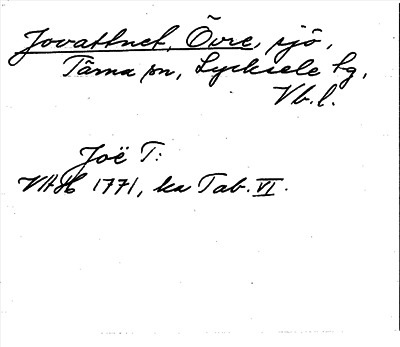 Jovattnet, Övre, sjö,
Tärna sn, Lycksele lg,
Vb. l.
Joë T:
VAH 1771, ka Tab. VI.